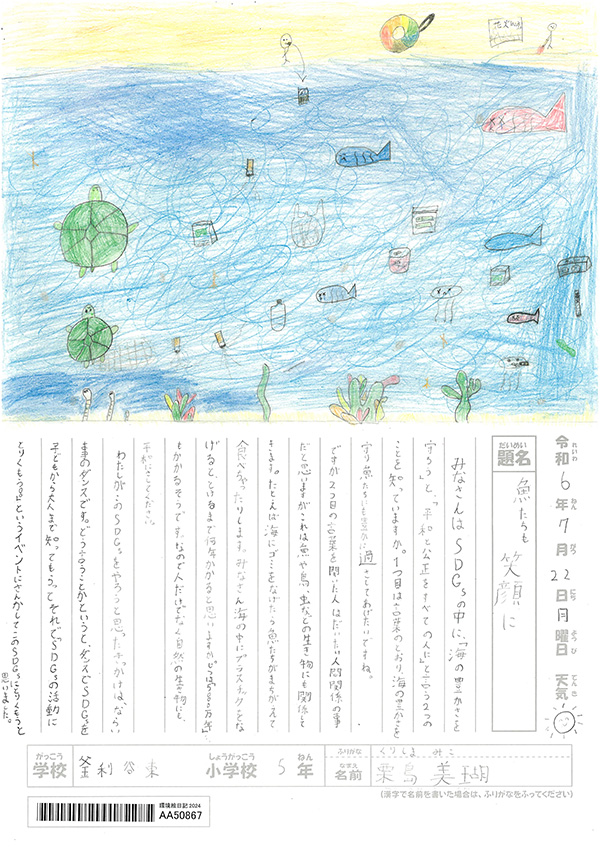 花火
令和6年7月22日月曜日 天気
れいわ ねん がつ にち ようび てんき
だいめい
題名
魚たちも笑顔に
みなさんはSDGsの中に、「海の豊かさを
守ろう」と、「平和と公正をすべての人に」と言う2つの
ことを知っていますか。1つ目は言葉のとおり海の豊かさを
守り魚たちにも豊かに過さしてあげたいですね。
ですが2つ目の言葉を聞いた人はだいたい人間関係の事
だと思いますがこれは魚や鳥、虫などの生き物にも関係して
きます。たとえば海にゴミをなげたら魚たちがまちがえて
食べちゃったりします。みなさん海の中にプラスチックをな
げると、とけるまで何年かかると思いますか
もかかるそうです。なので人だけでなく自然の生き物にも
平和にさしてください。
わたしがこのSDGsをやろうと思ったきっかけは、ならい
事のダンスです。どう言うことかというと、ダンスでSDGsを
子どもから大人まで知ってもらってそれでSDGsの活動に
とりくもう。というイベントにさんかしてこのSDGsにとりくもうと
思いました。
がっこう
学校
釜利谷東
しょうがっこう
小学校
5
ねん
年
ふりがな
くりしま みこ
なまえ
名前
栗島美瑚
(漢字で名前を書いた場合は、ふりがなをふってください)
環境絵日記2024
AA50867